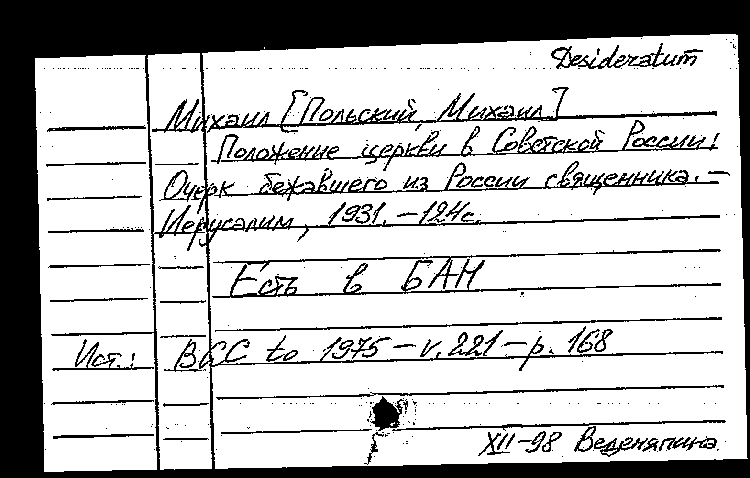 Desideratum
Михаил [Польский, Михаил]
Положение церкви в Советской России:
Очерк бежавшего из России священника. –
Иерусалим, 1931. – 124с.
Есть в БАН
Ист.: BLC to 1975 – v. 221 – p. 168
XII-98 Веденяпина